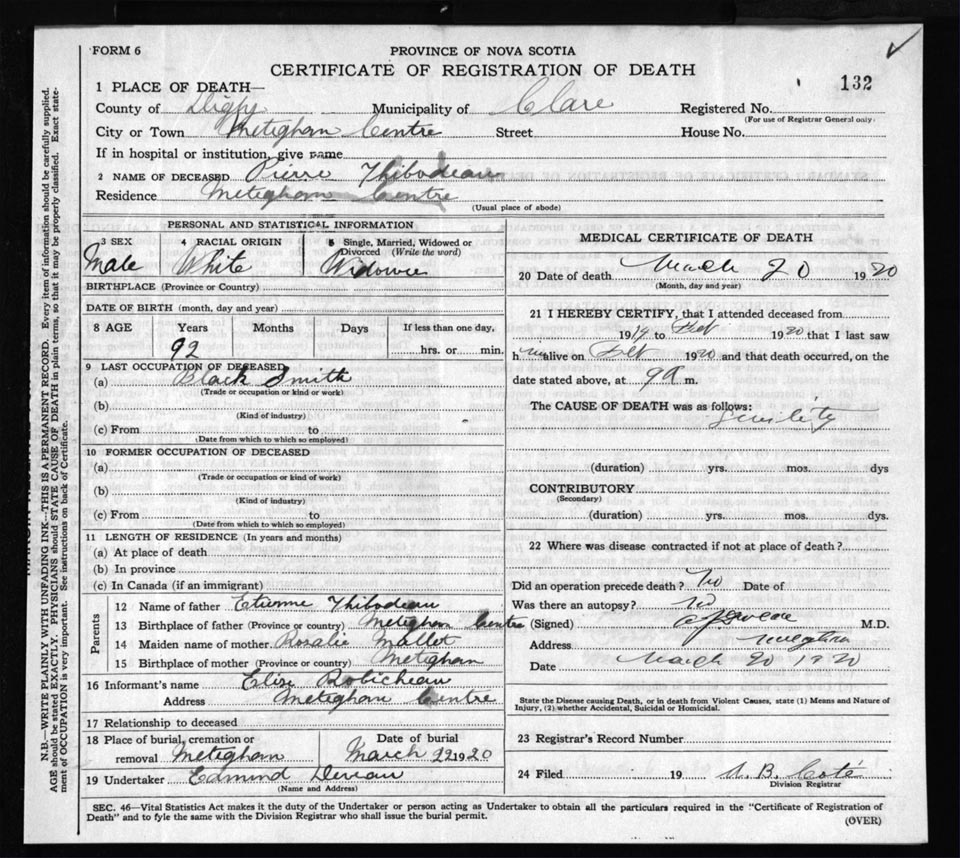 FORM 6
PROVINCE OF NOVA SCOTIA
CERTIFICATE OF REGISTRATION OF DEATH
132
1 PLACE OF DEATH—
County of Digby Municipality of Clare Registered No.
(For use of Registrar General only)
City or Town Meteghan Centre Street House No.
If in hospital or institution, give name
2 NAME OF DECEASED Pierre Thibodeau
Residence Meteghan Centre
(Usual place of abode)
PERSONAL AND STATISTICAL INFORMATION
3 SEX 4 RACIAL ORIGIN 5 Single, Married, Widowed or Divorced (Write the word)
Male White Widower
BIRTHPLACE (Province or Country)
DATE OF BIRTH (month, day and year)
8 AGE Years Months Days If less than one day,
92 hrs. or min.
9 LAST OCCUPATION OF DECEASED
(a) Black Smith
(Trade or occupation or kind of work)
(b)
(Kind of industry)
(c) From to
(Date from which to which so employed)
10 FORMER OCCUPATION OF DECEASED
(a)
(Trade or occupation or kind of work)
(b)
(Kind of industry)
(c) From to
(Date from which to which so employed)
11 LENGTH OF RESIDENCE (In years and months)
(a) At place of death
(b) In province
(c) In Canada (if an immigrant)
Parents
12 Name of father Etienne Thibodeau
13 Birthplace of father (Province or country) Meteghan Centre
14 Maiden name of mother Rosalie Mallet
15 Birthplace of mother (Province or country) Meteghan
16 Informant's name Elise Robicheau
Address Meteghan Centre
17 Relationship to deceased
18 Place of burial, cremation or removal Meteghan Date of burial March 22 1920
19 Undertaker Edmund Deveau
(Name and Address)
MEDICAL CERTIFICATE OF DEATH
20 Date of death March 20 1920
(Month, day and year)
21 I HEREBY CERTIFY, that I attended deceased from
1919 to Feb 1920 that I last saw
h im alive on Feb 1920 and that death occurred, on the
date stated above, at 9 a m.
The CAUSE OF DEATH was as follows:
Senility
(duration) yrs. mos. dys
CONTRIBUTORY
(Secondary)
(duration) yrs. mos. dys.
22 Where was disease contracted if not at place of death?
Did an operation precede death? No Date of
Was there an autopsy? No
(Signed) M.D.
Address Meteghan
Date March 20 1920
State the Disease causing Death, or in death from Violent Causes, state (1) Means and Nature of
Injury, (2) whether Accidental, Suicidal or Homicidal.
23 Registrar's Record Number
24 Filed 19 A. B. Coté
Division Registrar
SEC. 46—Vital Statistics Act makes it the duty of the Undertaker or person acting as Undertaker to obtain all the particulars required in the "Certificate of Registration of
Death" and to fyle the same with the Division Registrar who shall issue the burial permit.
(OVER)
N.B.—WRITE PLAINLY WITH UNFADING INK—THIS IS A PERMANENT RECORD. Every item of information should be carefully supplied.
AGE should be stated EXACTLY. PHYSICIANS should STATE CAUSE OF DEATH in plain terms, so that it may be properly classified. Exact state-
ment of OCCUPATION is very important. See instructions on back of Certificate.